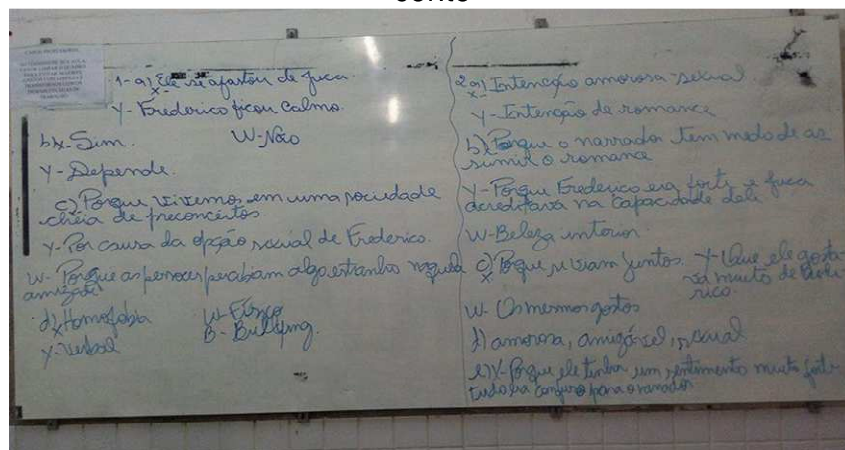 conto
1-a) Ele se afastou de Juca.
x-
Y- Frederico ficou calmo.
b) x- Sim. W- Não
Y- Depende.
c) Porque vivemos em uma sociedade
cheia de preconceitos
Y- Por causa da opção sexual de Frederico.
W- Porque as pessoas percebiam algo estranho naquela
amizade
d) Homofobia W- Físico
x
Y- Verbal B- Bullying.
2 a) Intenção amorosa-sexual
x-
Y- Intenção de romance
b) Porque o narrador tem medo de as
sumir o romance
Y- Porque Frederico era forte e Juca
acreditava na capacidade dele
W- Beleza interior.
c) Porque se viam juntos. Y- Que ele gosta
x va muito de
rico.
W- Os mesmos gostos
d) amorosa, amigável, sexual
e) X- Porque ele tinha um sentimento muito forte
tudo era confuso para o narrador